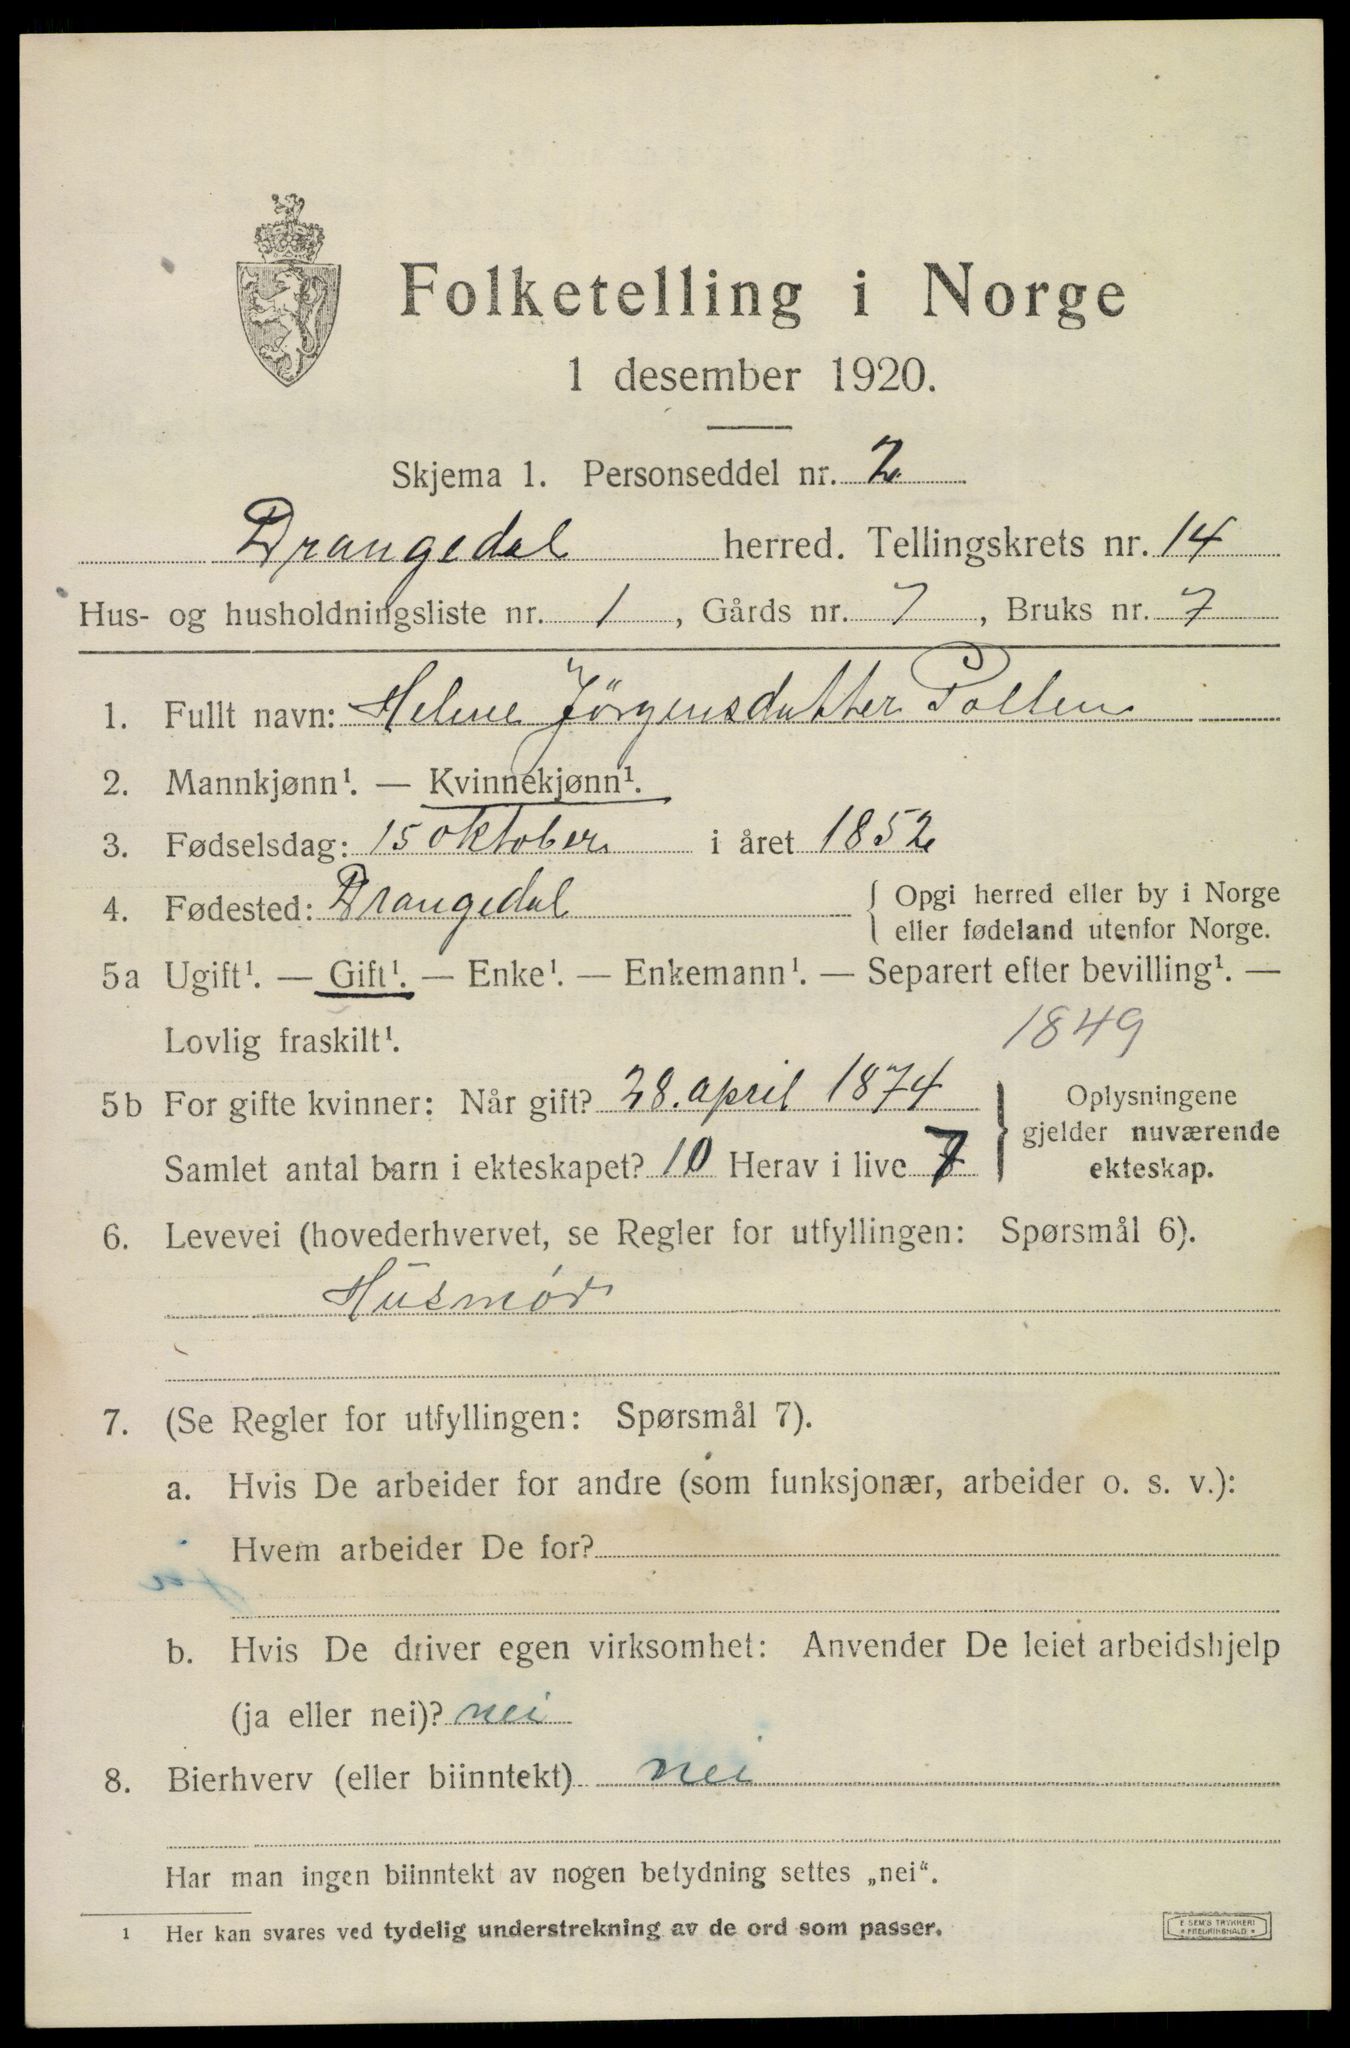 Folketelling i Norge
1 desember 1920.
Skjema 1. Personseddel nr. 2
Drangedal herred. Tellingskrets nr. 14
Hus- og husholdningsliste nr. 1, Gårds nr. 7, Bruks nr. 7
1. Fullt navn: Helene Jörgensdatter Pollen
2. Mannkjønn¹. — Kvinnekjønn¹.
3. Fødselsdag: 15 oktober i året 1852
4. Fødested: Drangedal { Opgi herred eller by i Norge
eller fødeland utenfor Norge.
5a Ugift¹. — Gift¹. — Enke¹. — Enkemann¹. — Separert efter bevilling¹. —
Lovlig fraskilt¹. 1849
5b For gifte kvinner: Når gift? 28. april 1874
Samlet antal barn i ekteskapet? 10 Herav i live 7
} Oplysningene
gjelder nuværende
ekteskap.
6. Levevei (hovederhvervet, se Regler for utfyllingen: Spørsmål 6).
Husmør
7. (Se Regler for utfyllingen: Spørsmål 7).
a. Hvis De arbeider for andre (som funksjonær, arbeider o. s. v.):
Hvem arbeider De for?
b. Hvis De driver egen virksomhet: Anvender De leiet arbeidshjelp
(ja eller nei)? nei
8. Bierhverv (eller biinntekt) nei
Har man ingen biinntekt av nogen betydning settes „nei“.
¹ Her kan svares ved tydelig understrekning av de ord som passer.
E SEM'S TRYKKERI
FREDRIKSHALD